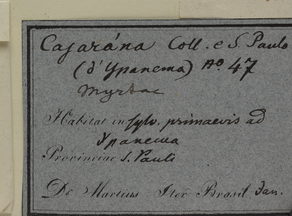 Cajarána Coll. e S. Paulo
(d'Ypanema) No. 47
Myrtac
Habitat in sylv. primaevis ad
Ypanema
Provinciae S. Pauli
De Martius Iter Brasil Jan.